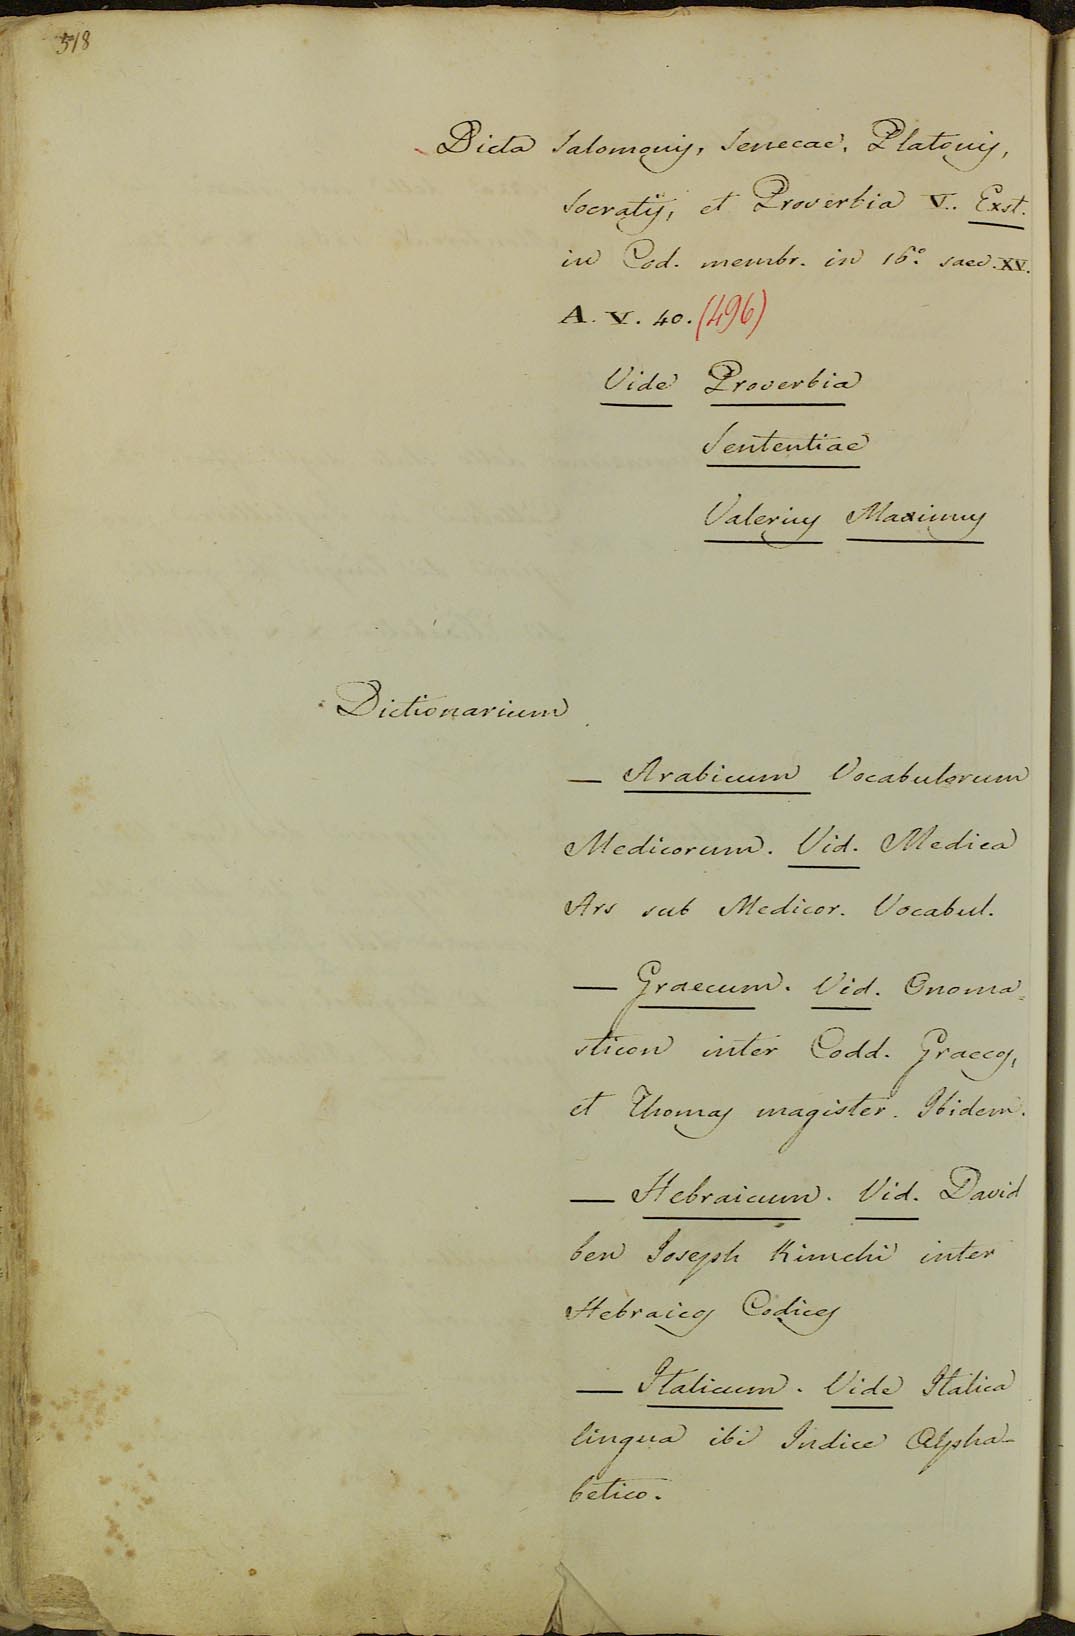 518
Dicta Salomonis, Senecae, Platonis,
Socratis, et Proverbia V.. Exst.
in Cod. membr. in 16.° saec. XV.
A. V. 40. (496)
Vide Proverbia
Sententiae
Valerius Maximus
Dictionarium
— Arabicum Vocabulorum
Medicorum. Vid. Medica
Ars sub Medicor. Vocabul.
— Graecum. Vid. Onoma=
sticon inter Codd. Graecos,
et Thomas magister. Ibidem.
— Hebraicum. Vid. David
ben Joseph Kimchi inter
Hebraicos Codices
— Italicum. Vide Italica
lingua ibi Indice Alpha-
betico.